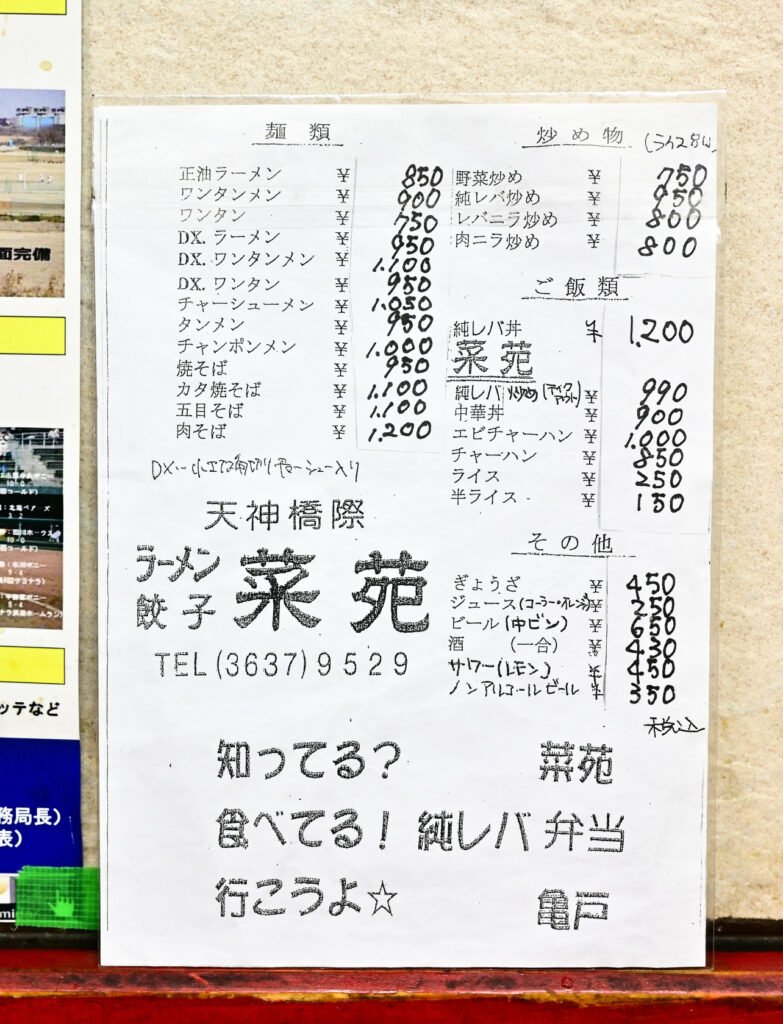 麺類
正油ラーメン ¥ 850
ワンタンメン ¥ 900
ワンタン ¥ 750
DX. ラーメン ¥ 950
DX. ワンタンメン ¥ 1.100
DX. ワンタン ¥ 950
チャーシューメン ¥ 1.050
タンメン ¥ 950
チャンポンメン ¥ 1.000
焼そば ¥ 950
カタ焼そば ¥ 1.100
五目そば ¥ 1.100
肉そば ¥ 1.200
天神橋際
ラーメン
餃子
菜苑
TEL(3637)9529
炒め物
野菜炒め ¥ 750
純レバ炒め ¥ 950
レバニラ炒め ¥ 800
肉ニラ炒め ¥ 800
ご飯類
純レバ丼 ¥ 1.200
菜苑
純レバ炒め(テイクアウト) ¥ 990
中華丼 ¥ 900
エビチャーハン ¥ 1.000
チャーハン ¥ 850
ライス ¥ 250
半ライス ¥ 150
その他
ぎょうざ ¥ 450
ジュース(コーラ・オレンジ) ¥ 250
ビール(中ビン) ¥ 650
酒 (一合) ¥ 430
サワー(レモン) ¥ 450
ノンアルコールビール ¥ 350
税込
知ってる? 菜苑
食べてる! 純レバ 弁当
行こうよ☆ 亀戸
面完備
ッテなど
務局長)
表)